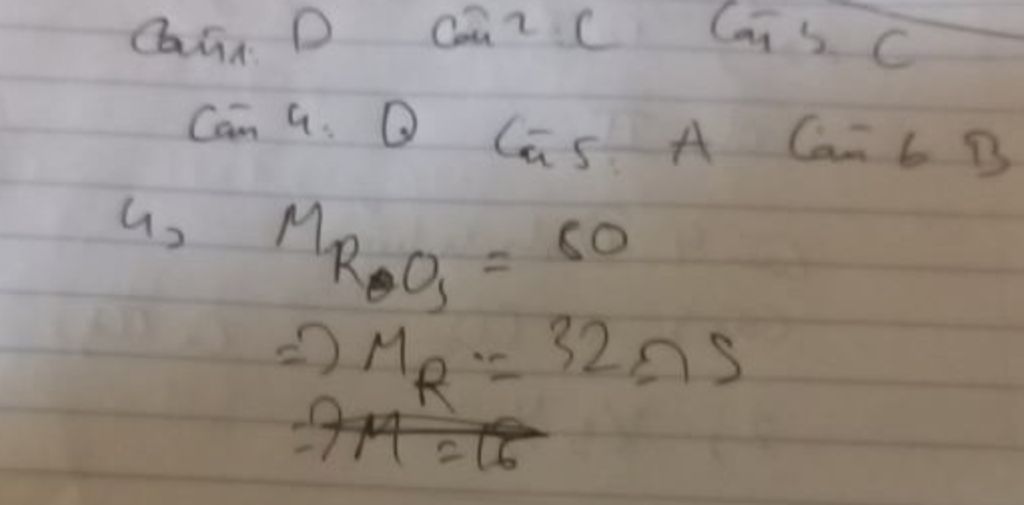 Câu 1. D Câu 2. C Câu 3. C
Câu 4. D Câu 5. A Câu 6 B
4, M_RO₃ = 80
=> M_R = 32 => S
=> M = 16